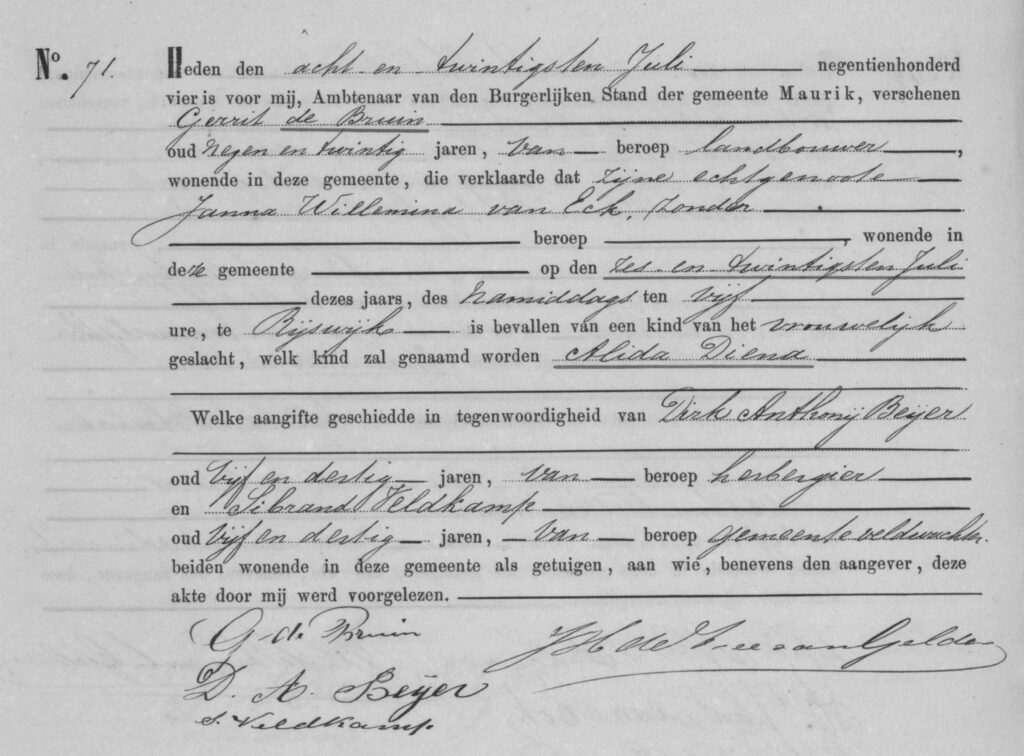 No. 71. Heden den acht en twintigsten Juli negentienhonderd
vier is voor mij, Ambtenaar van den Burgerlijken Stand der gemeente Maurik, verschenen
Gerrit de Bruin
oud negen en twintig jaren, van beroep landbouwer,
wonende in deze gemeente, die verklaarde dat zijne echtgenoote
Janna Willemina van Eck, zonder
beroep , wonende in
deze gemeente op den zes en twintigsten Juli
dezes jaars, des namiddags ten vijf
ure, te Rijswijk is bevallen van een kind van het vrouwelijk
geslacht, welk kind zal genaamd worden Alida Diena
Welke aangifte geschiedde in tegenwoordigheid van Dirk Anthonij Beijer
oud vijf en dertig jaren, van beroep herbergier
en Sibrand Veldkamp
oud vijf en dertig jaren, van beroep gemeenteveldwachter.
beiden wonende in deze gemeente als getuigen, aan wie, benevens den aangever, deze
akte door mij werd voorgelezen.
G de Bruin
D. A. Beijer
S. Veldkamp